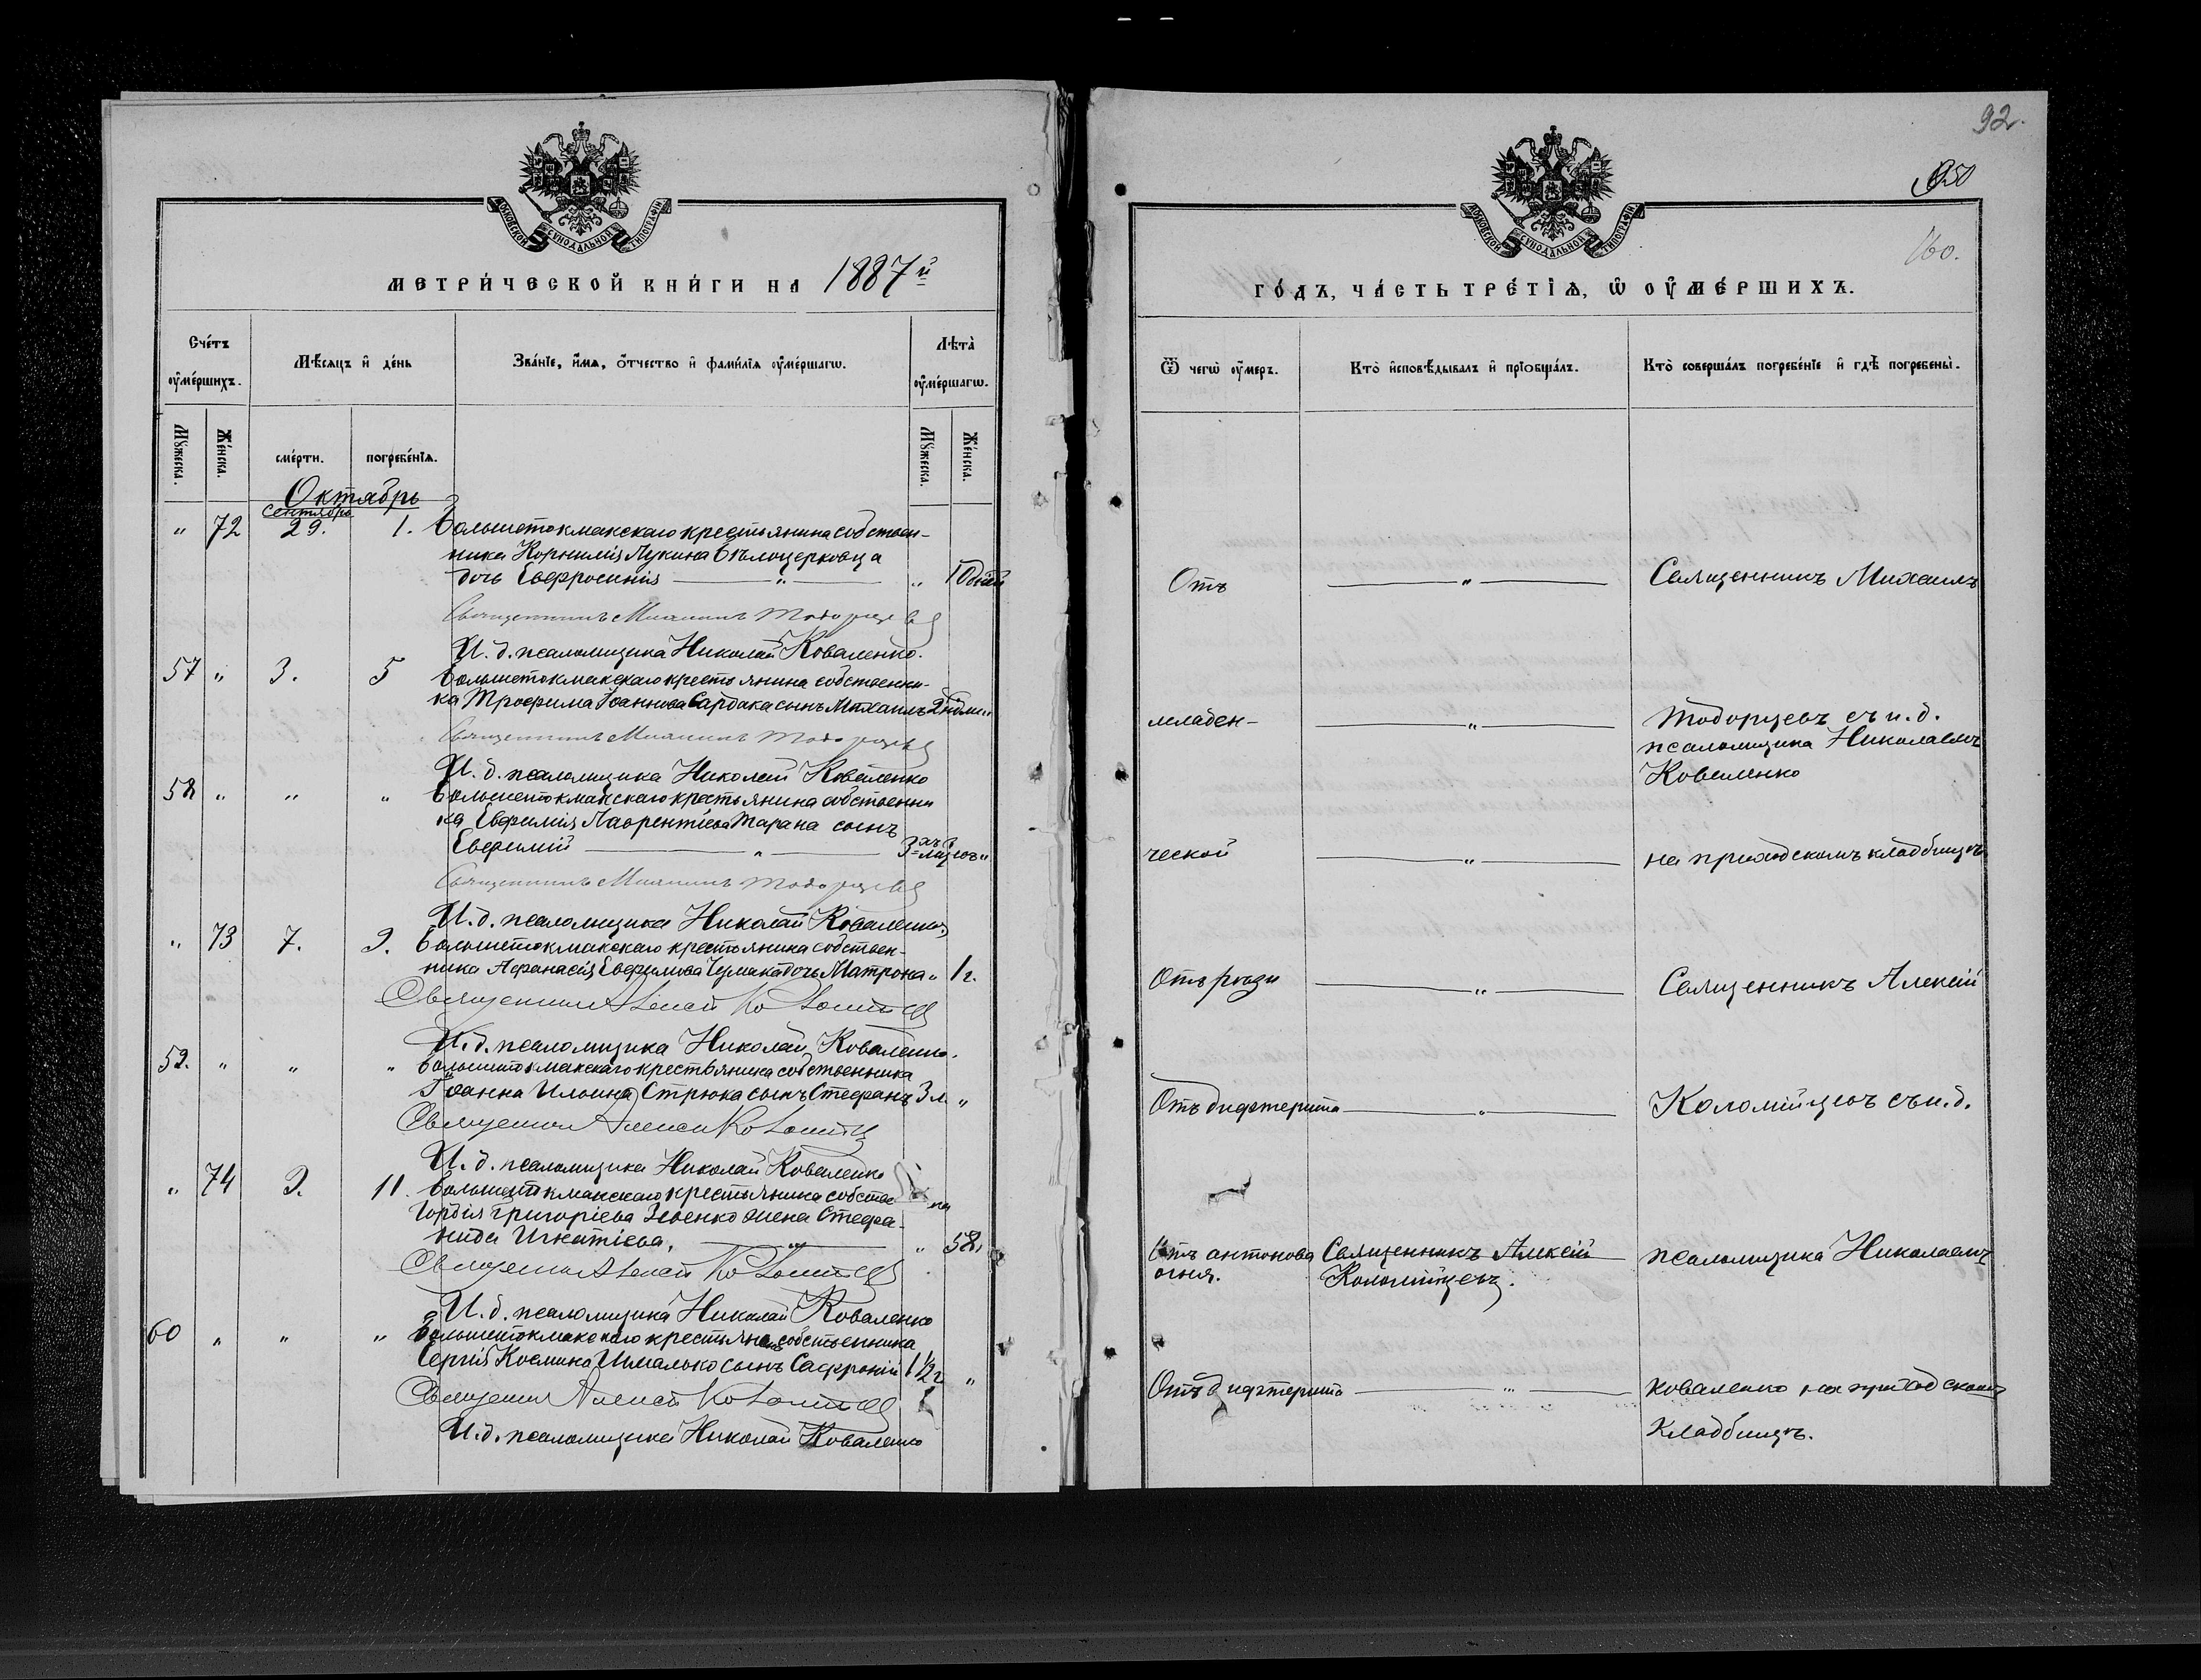 92.
950
160.
МОСКОВСКОЙ СѴНОДАЛЬНОЙ ТИПОГРАФІИ
МЕТРИ́ЧЕСКОЙ КНИ́ГИ НА 1887й
Сче́тъ оу҆ме́ршихъ.
Мѣ́сяцъ и҆ де́нь
Зва́ніе, и҆́мѧ, ѻ҆́тчество и҆ фами́лїѧ оу҆ме́ршагѡ.
Лѣ́та̀ оу҆ме́ршагѡ.
Мꙋ́жеска.
Же́нска.
сме́рти.
погребе́нїѧ.
Мꙋ́жеска.
Же́нска.
Октябрь
Сентября
" 72 29. 1. Большетокмакскаго крестьянина собствен-
ника Корнилія Лукина Бѣлоцерковца
дочь Евфросинія — " — " 10 дней
Священникъ Михаилъ Тодорцевъ
И. д. псаломщика Николай Коваленко.
57 " 3. 5 Большетокмакскаго крестьянина собственни-
ка Трофима Іоаннова Сардака сынъ Михаилъ
Священникъ Михаилъ Тодорцевъ
И. д. псаломщика Николай Коваленко
58 " " " Большетокмакскаго крестьянина собственни
ка Евфимія Лаврентіева Тарана сынъ
Евфимій — " — 3хъ мѣсяцевъ "
Священникъ Михаилъ Тодорцевъ
И. д. псаломщика Николай Коваленко
" 73 7. 9. Большетокмакскаго крестьянина собствен-
ника Афанасія Евфимова Чумака дочь Матрона " 1 г.
Священникъ Алексій Коломійцевъ
И. д. псаломщика Николай Коваленко.
59. " " " Большетокмакскаго крестьянина собственника
Іоанна Ильина Стрюка сынъ Стефанъ 3 л. "
Священникъ Алексій Коломійцевъ
И. д. псаломщика Николай Коваленко
" 74 9. 11. Большетокмакскаго крестьянина собстве
Гордія Григоріева Зевенко жена Стефа-
нида Игнатіева. — " — " 58.
Священникъ Алексій Коломійцевъ
И. д. псаломщика Николай Коваленко
60 " " " Большетокмакскаго крестьянина собственника
Сергія Космина Шмалько сынъ Сафроній 1 1/2 г "
Священникъ Алексій Коломійцевъ
И. д. псаломщика Николай Коваленко
МОСКОВСКОЙ СѴНОДАЛЬНОЙ ТИПОГРАФІИ
ГО́ДЪ, ЧА́СТЬ ТРЕ́ТЇѦ, Ѡ҆ ОУ҆МЕ́РШИХЪ.
Ѿ чегѡ̀ оу҆́меръ.
Кто̀ и҆сповѣ́дывалъ и҆ прїобща́лъ.
Кто̀ соверша́лъ погребе́нїе и҆ гдѣ̀ погребены̀.
Отъ — " — Священникъ Михаилъ
младен- — " — Тодорцевъ съ и. д.
псаломщика Николаемъ
Коваленко
ческой — " — на приходскомъ кладбищѣ
Отъ рожи — " — Священникъ Алексій
Отъ дифтерита — " — Коломійцевъ съ и. д.
Отъ антонова Священникъ Алексій — псаломщика Николаемъ
огня. Коломійцевъ.
Отъ дифтерита — " — Коваленко на приходскомъ
кладбищѣ.